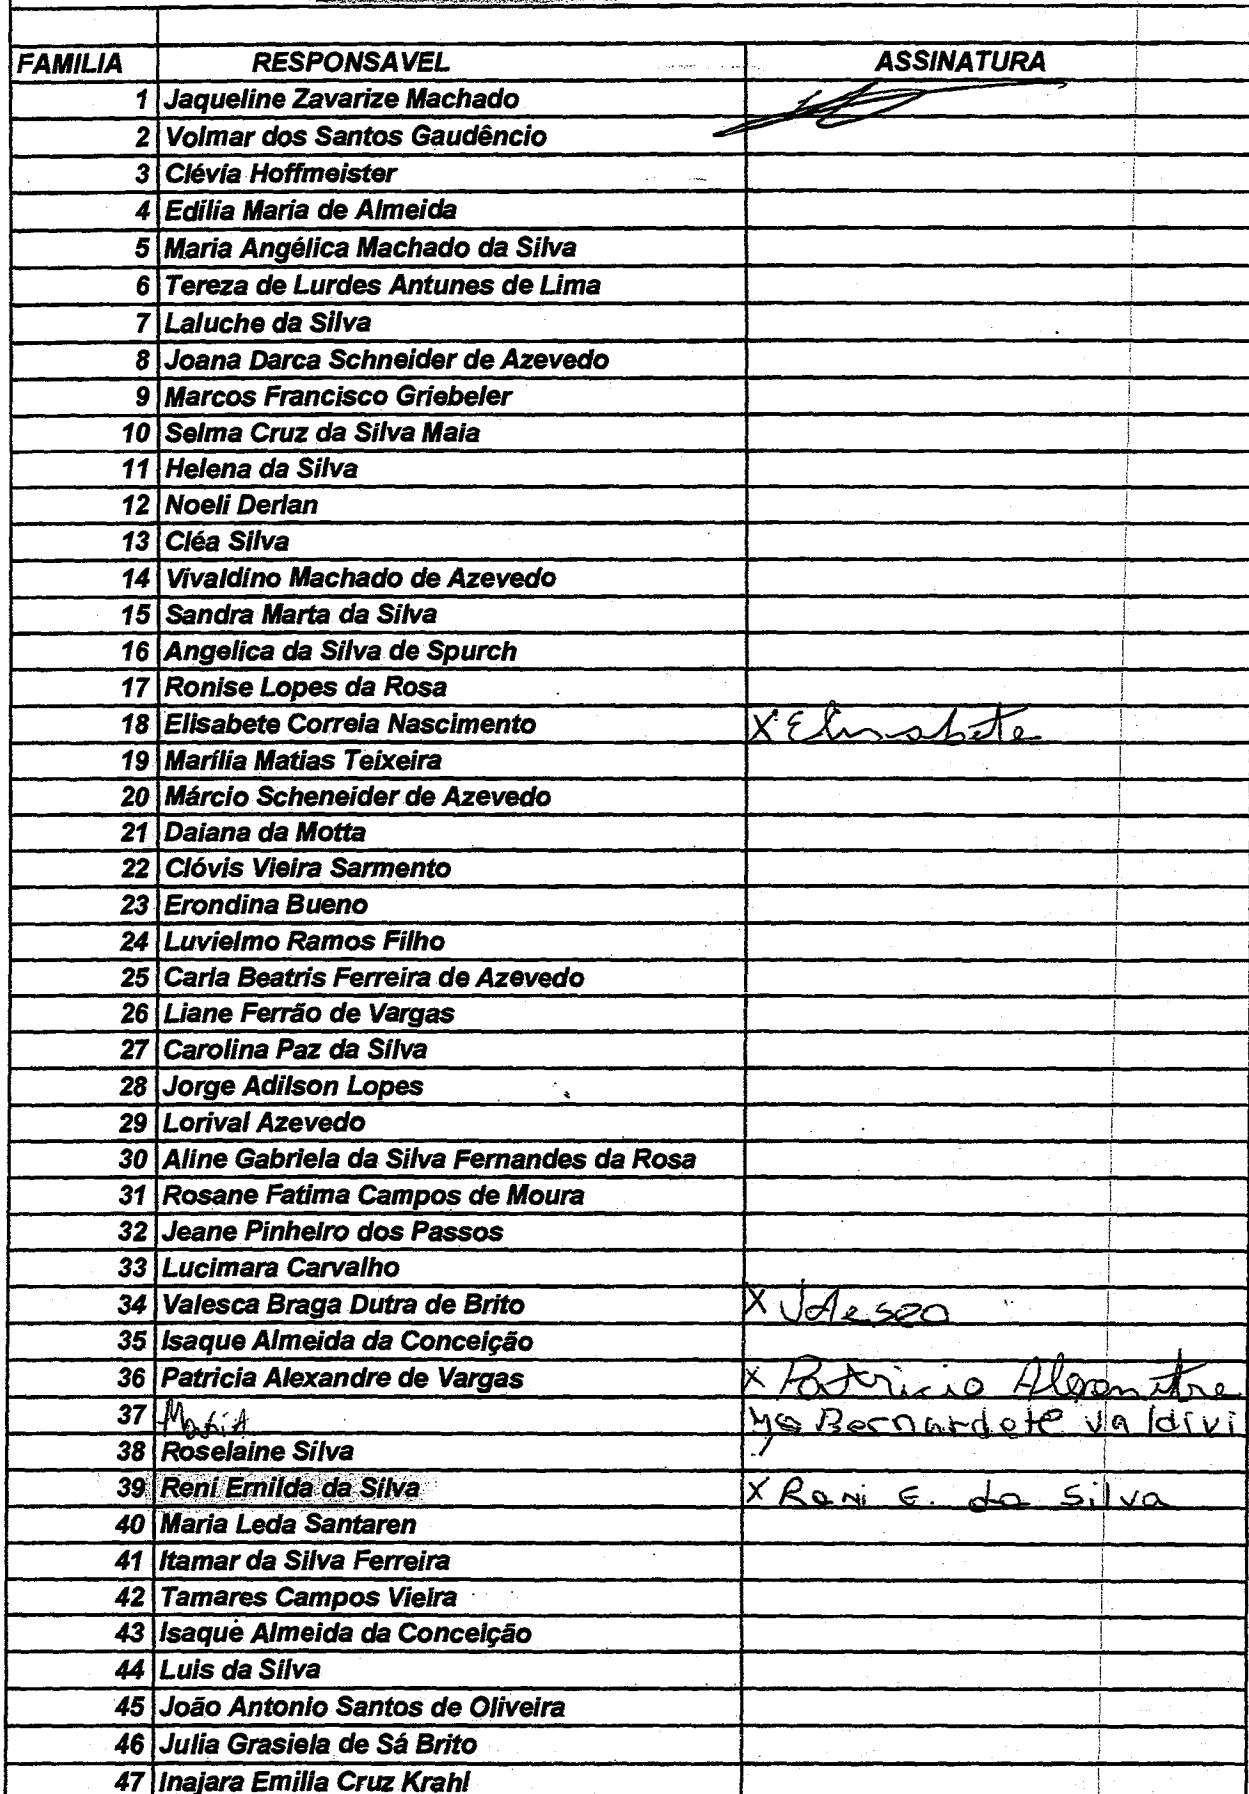 FAMILIA RESPONSAVEL ASSINATURA
1 Jaqueline Zavarize Machado
2 Volmar dos Santos Gaudêncio
3 Clévia Hoffmeister
4 Edilia Maria de Almeida
5 Maria Angélica Machado da Silva
6 Tereza de Lurdes Antunes de Lima
7 Laluche da Silva
8 Joana Darca Schneider de Azevedo
9 Marcos Francisco Griebeler
10 Selma Cruz da Silva Maia
11 Helena da Silva
12 Noeli Derlan
13 Cléa Silva
14 Vivaldino Machado de Azevedo
15 Sandra Marta da Silva
16 Angelica da Silva de Spurch
17 Ronise Lopes da Rosa
18 Elisabete Correia Nascimento X Elisabete
19 Marília Matias Teixeira
20 Márcio Scheneider de Azevedo
21 Daiana da Motta
22 Clóvis Vieira Sarmento
23 Erondina Bueno
24 Luvielmo Ramos Filho
25 Carla Beatris Ferreira de Azevedo
26 Liane Ferrão de Vargas
27 Carolina Paz da Silva
28 Jorge Adilson Lopes
29 Lorival Azevedo
30 Aline Gabriela da Silva Fernandes da Rosa
31 Rosane Fatima Campos de Moura
32 Jeane Pinheiro dos Passos
33 Lucimara Carvalho
34 Valesca Braga Dutra de Brito X
35 Isaque Almeida da Conceição
36 Patricia Alexandre de Vargas X Patricia
37 Maria Bernardete valdivi
38 Roselaine Silva
39 Reni Emilda da Silva X Reni E. da Silva
40 Maria Leda Santaren
41 Itamar da Silva Ferreira
42 Tamares Campos Vieira
43 Isaque Almeida da Conceição
44 Luis da Silva
45 João Antonio Santos de Oliveira
46 Julia Grasiela de Sá Brito
47 Inajara Emilia Cruz Krahl